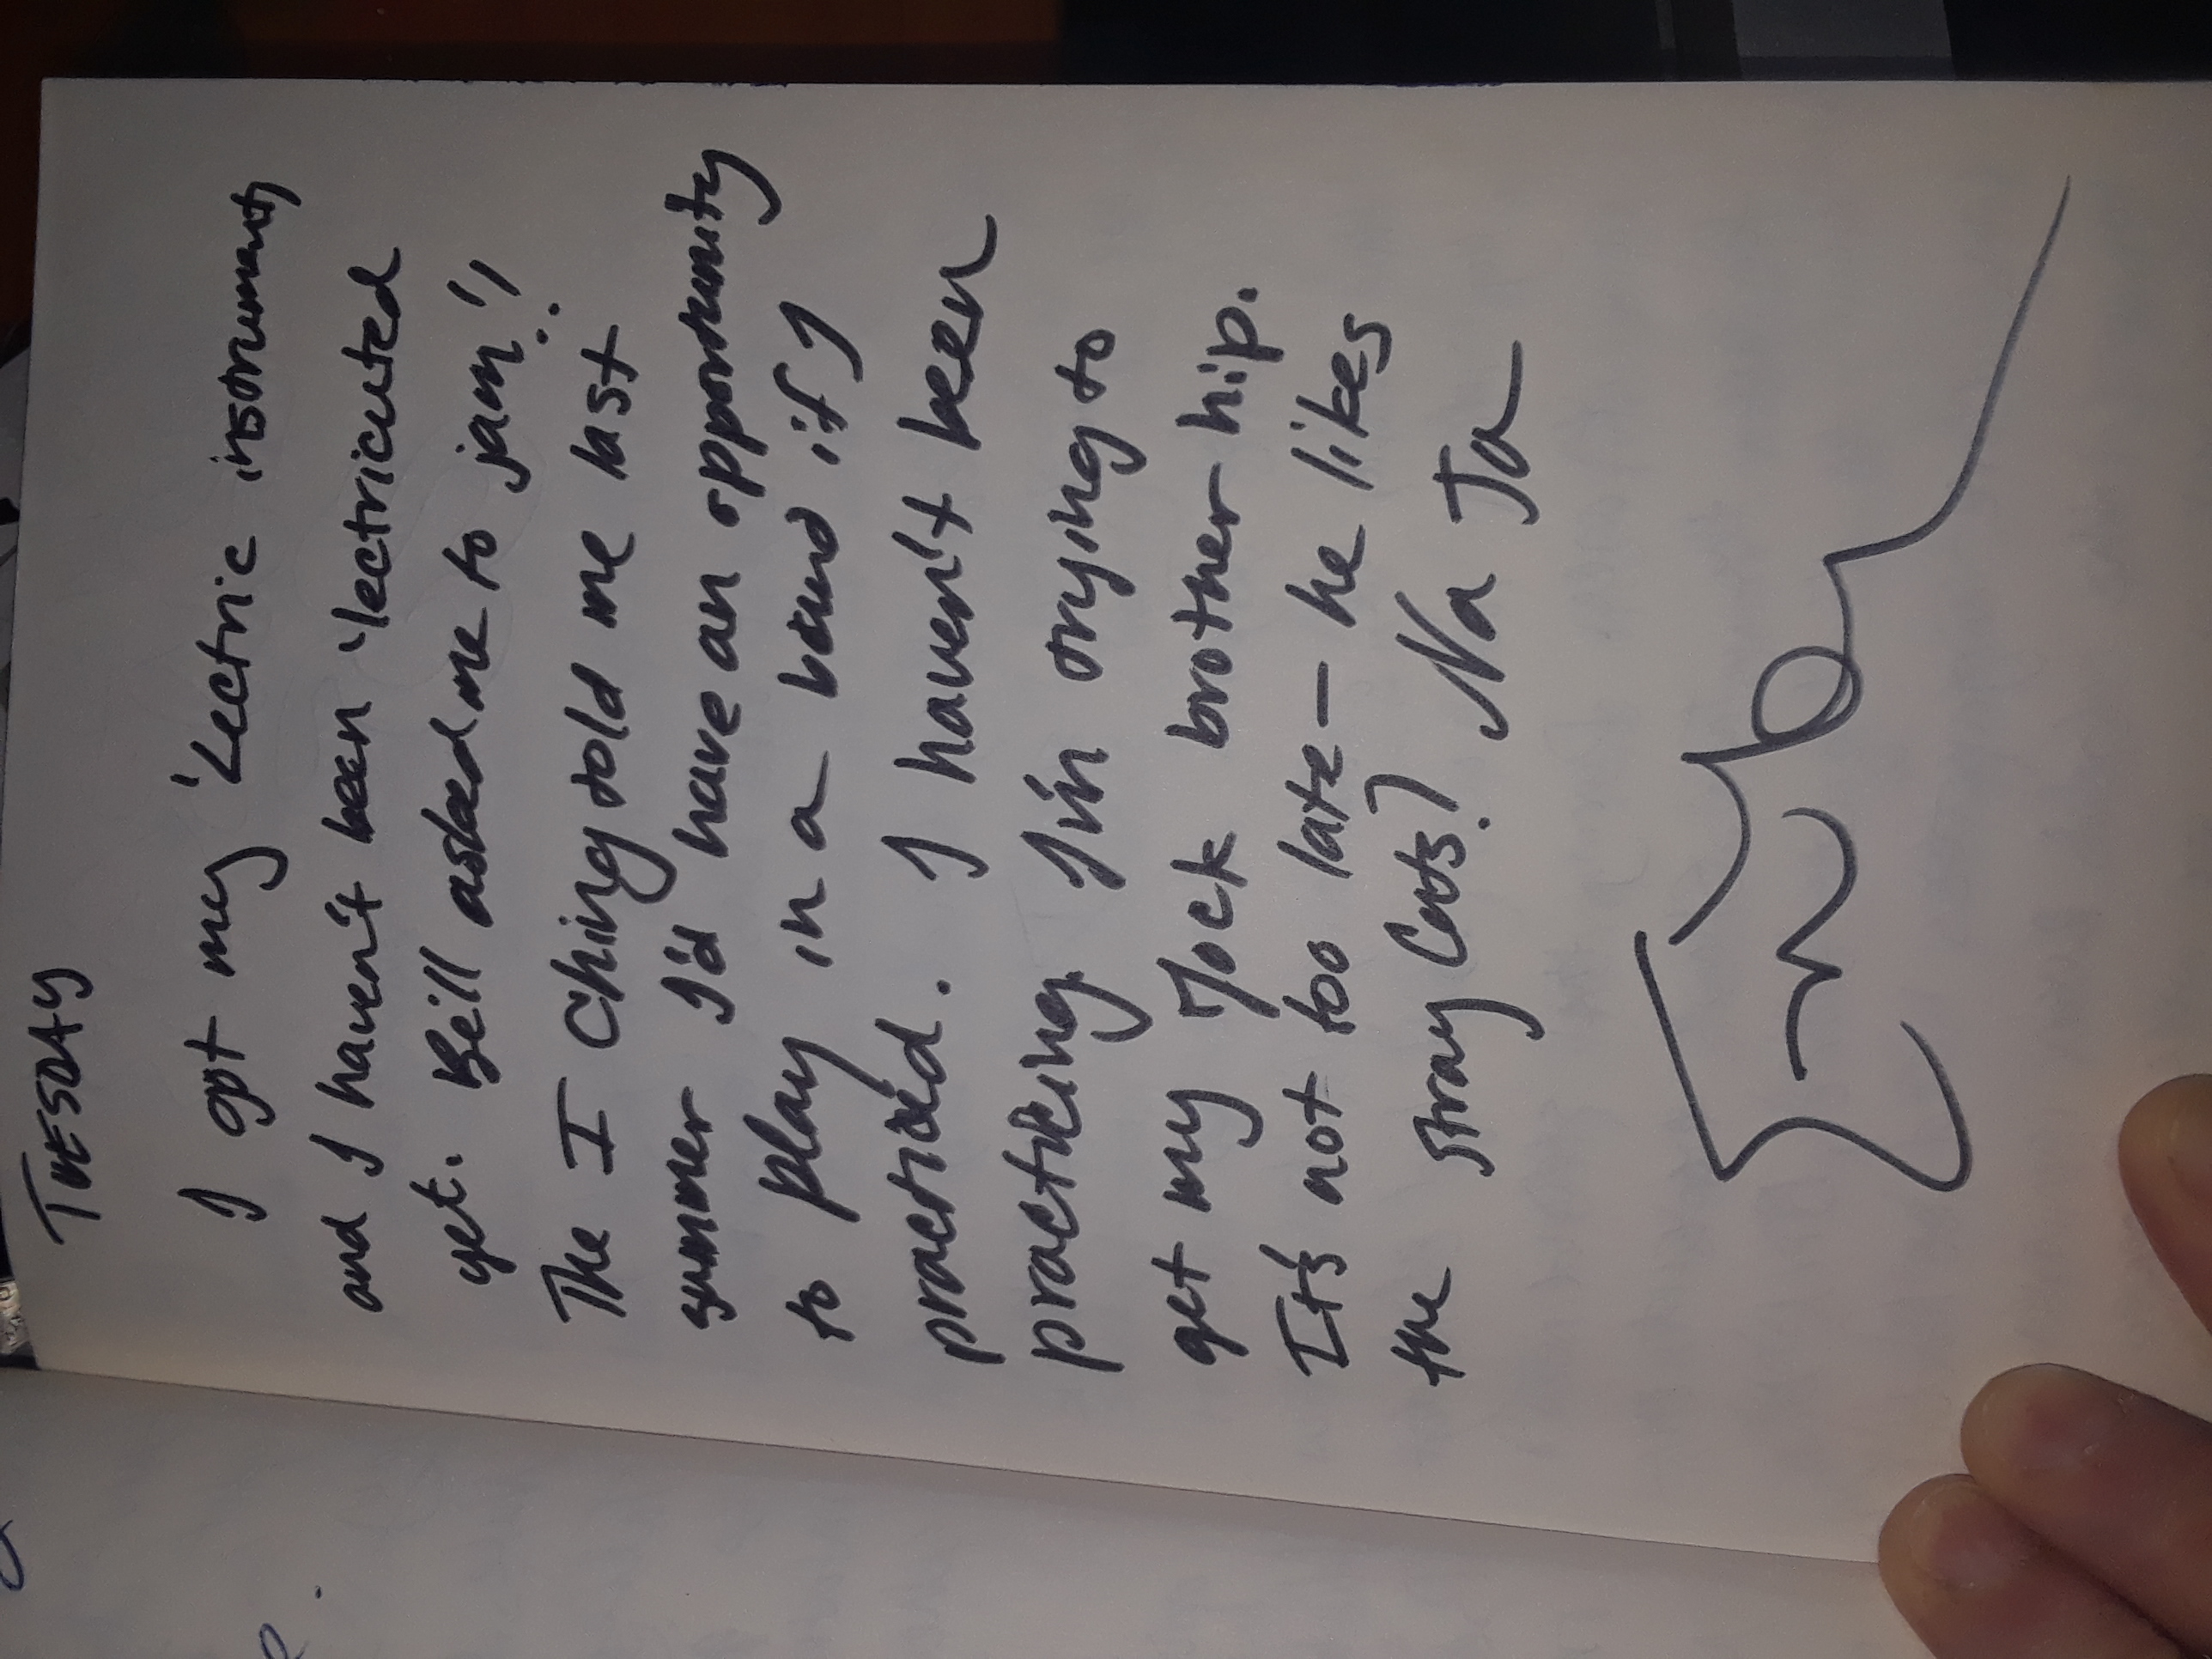 TUESDAY
I got my 'Lectric instruments
and I haven't been 'lectricuted
yet. Bill asked me to jam!!
The I Ching told me last
summer I'd have an opportunity
to play in a band if I
practiced. I haven't been
practicing. I'm trying to
get my Jock brother hip.
It's not too late — he likes
the Stray Cats! Na Ja